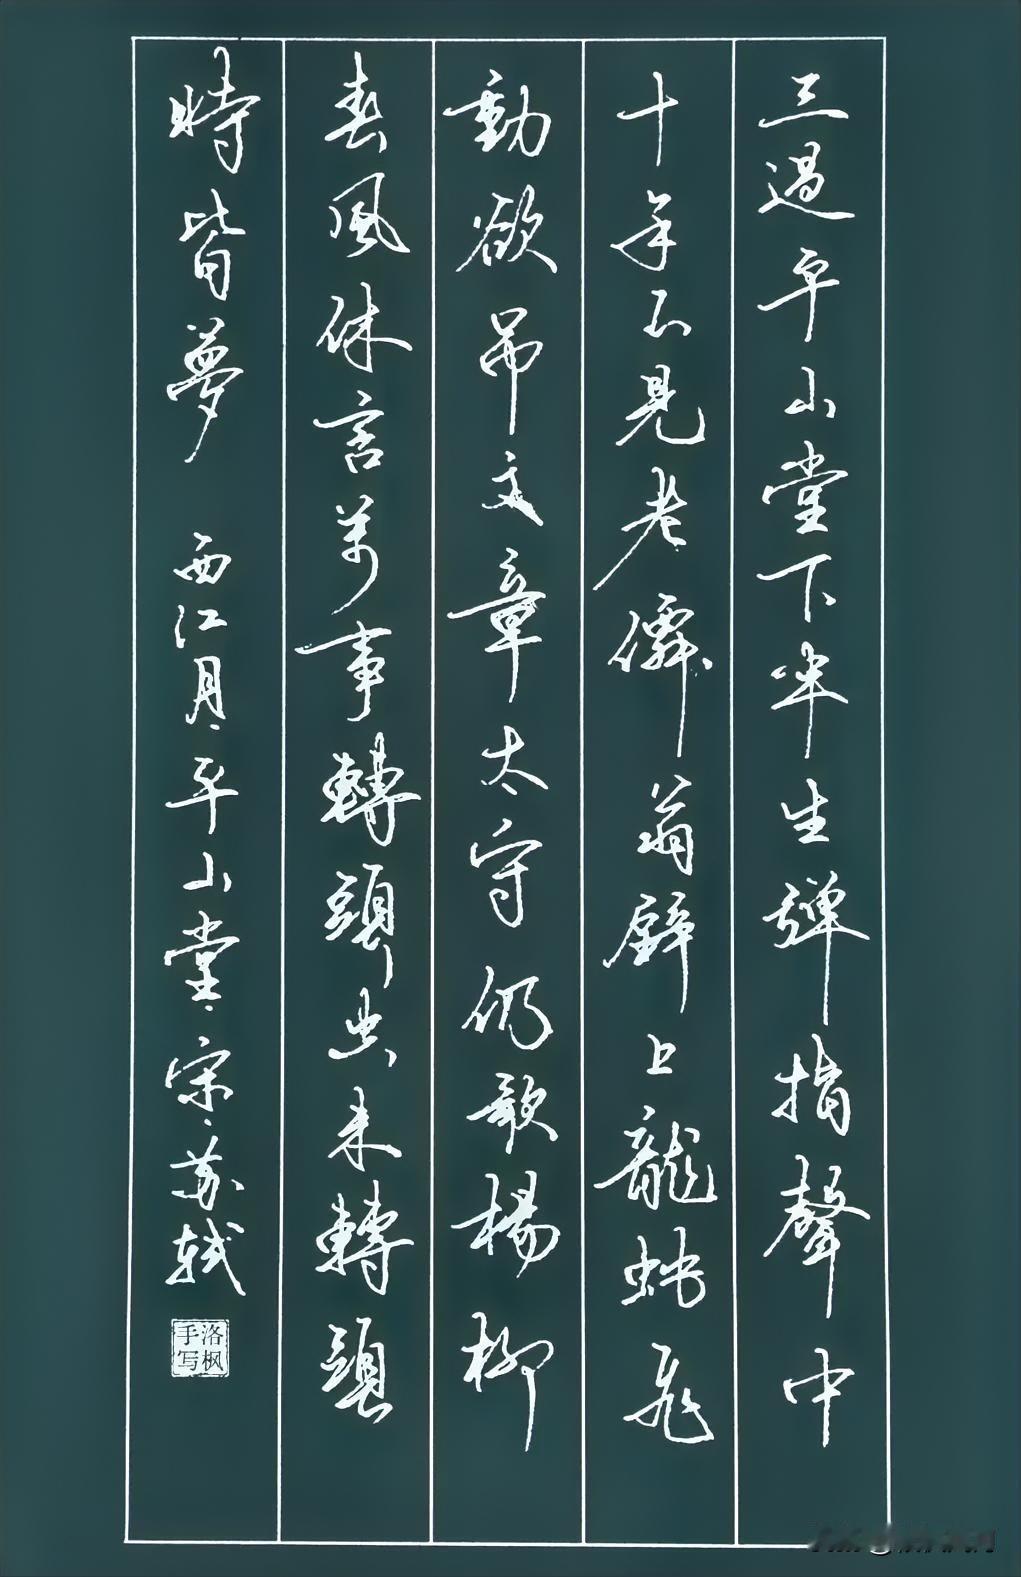 三過平山堂下半生彈指聲中
十年不見老僊翁壁上龍蛇飛
動欲吊文章太守仍歌楊柳
春風休言萬事轉頭空未轉頭
時皆夢 西江月·平山堂·宋·苏轼
洛枫手写